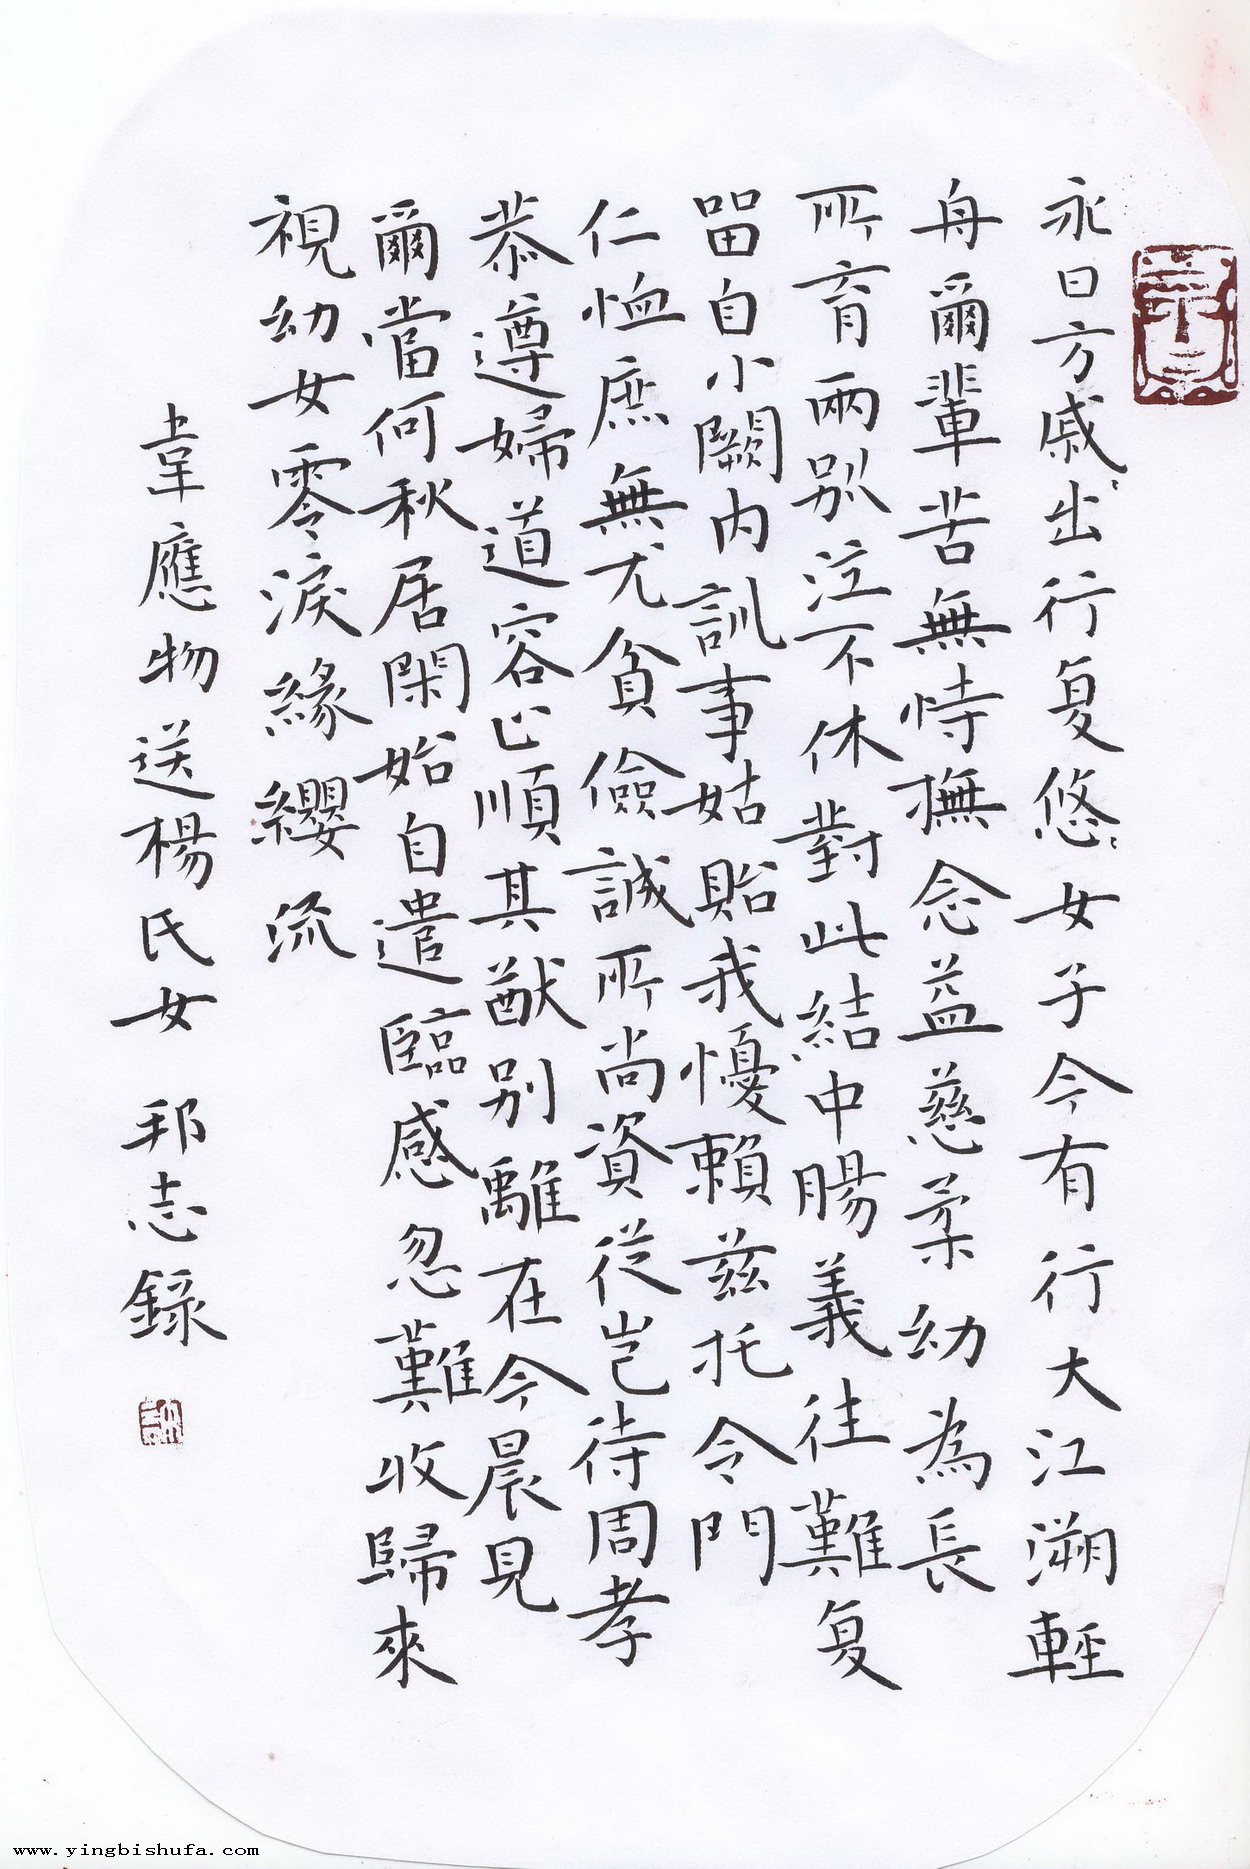 永日方戚々出行复悠々女子今有行大江溯輕
舟爾輩苦無恃撫念益慈柔幼為長
所育兩别泣不休對此結中腸義往難复
留自小闕内訓事姑貽我懮賴兹托令門
仁恤庶無尤貧儉誠所尚資從岂待周孝
恭遵婦道容止順其猷别離在今晨見
爾當何秋居閑始自遣臨感忽難收歸來
視幼女零淚緣纓流
韋應物送楊氏女 邦志錄
www.yingbishufa.com